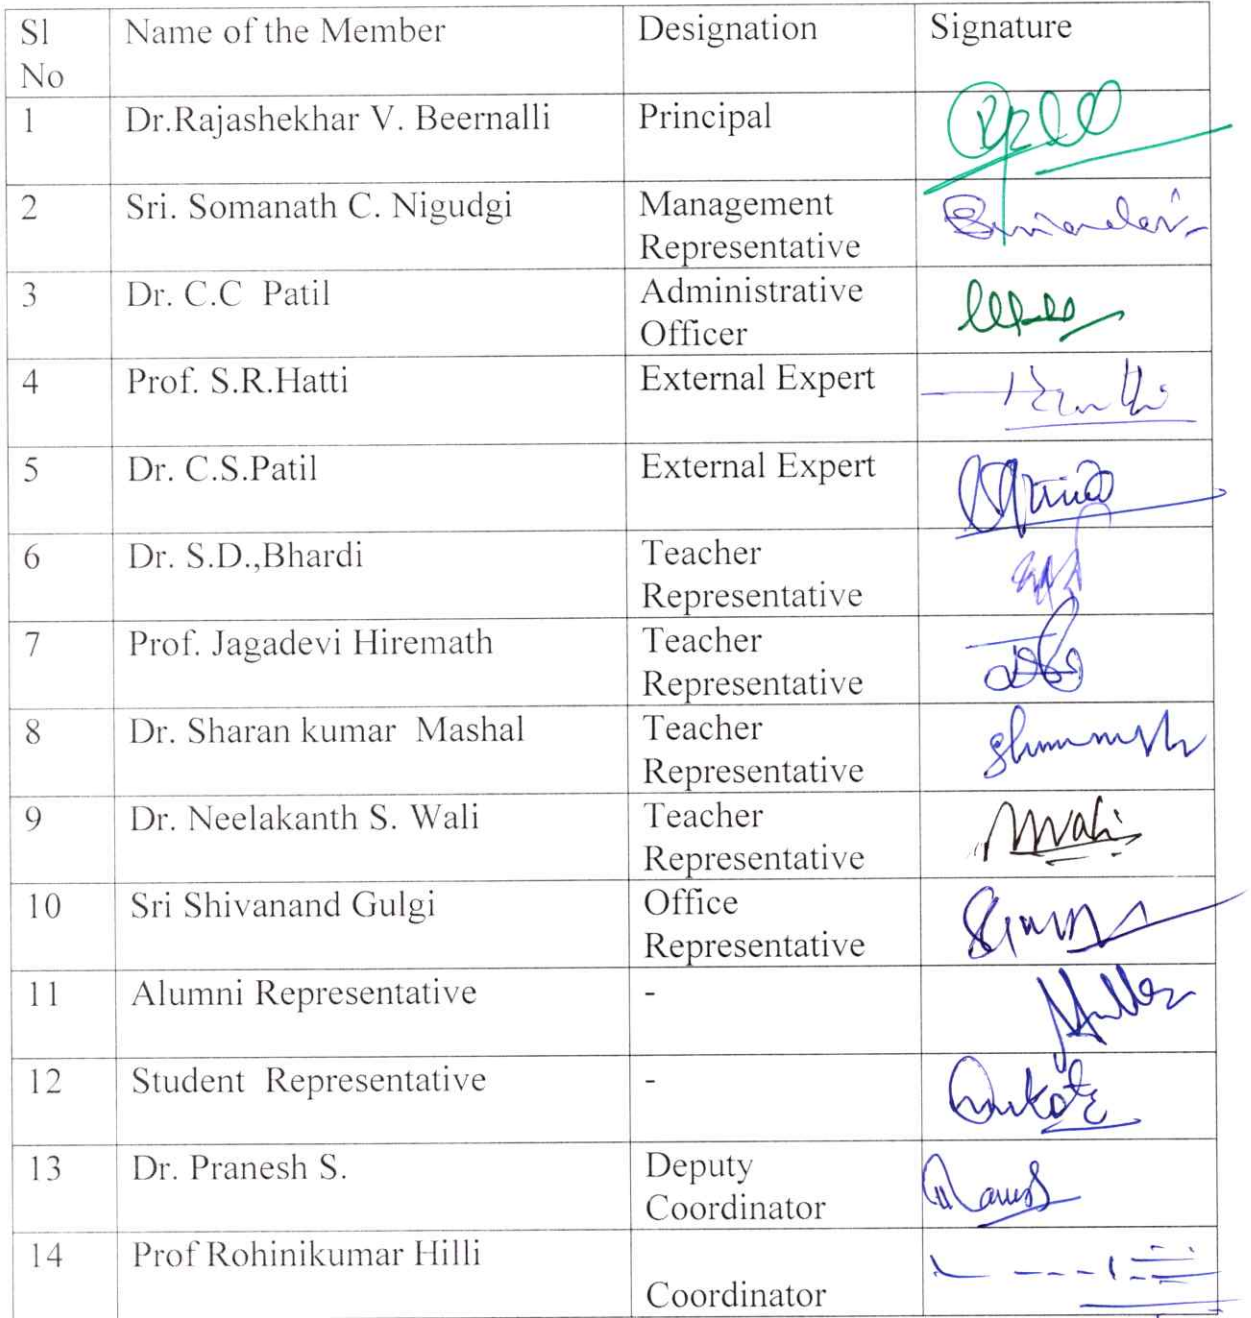 Sl No | Name of the Member | Designation | Signature
1 | Dr.Rajashekhar V. Beernalli | Principal
2 | Sri. Somanath C. Nigudgi | Management Representative
3 | Dr. C.C  Patil | Administrative Officer
4 | Prof. S.R.Hatti | External Expert
5 | Dr. C.S.Patil | External Expert
6 | Dr. S.D.,Bhardi | Teacher Representative
7 | Prof. Jagadevi Hiremath | Teacher Representative
8 | Dr. Sharan kumar  Mashal | Teacher Representative
9 | Dr. Neelakanth S. Wali | Teacher Representative
10 | Sri Shivanand Gulgi | Office Representative
11 | Alumni Representative | -
12 | Student  Representative | -
13 | Dr. Pranesh S. | Deputy Coordinator
14 | Prof Rohinikumar Hilli | Coordinator